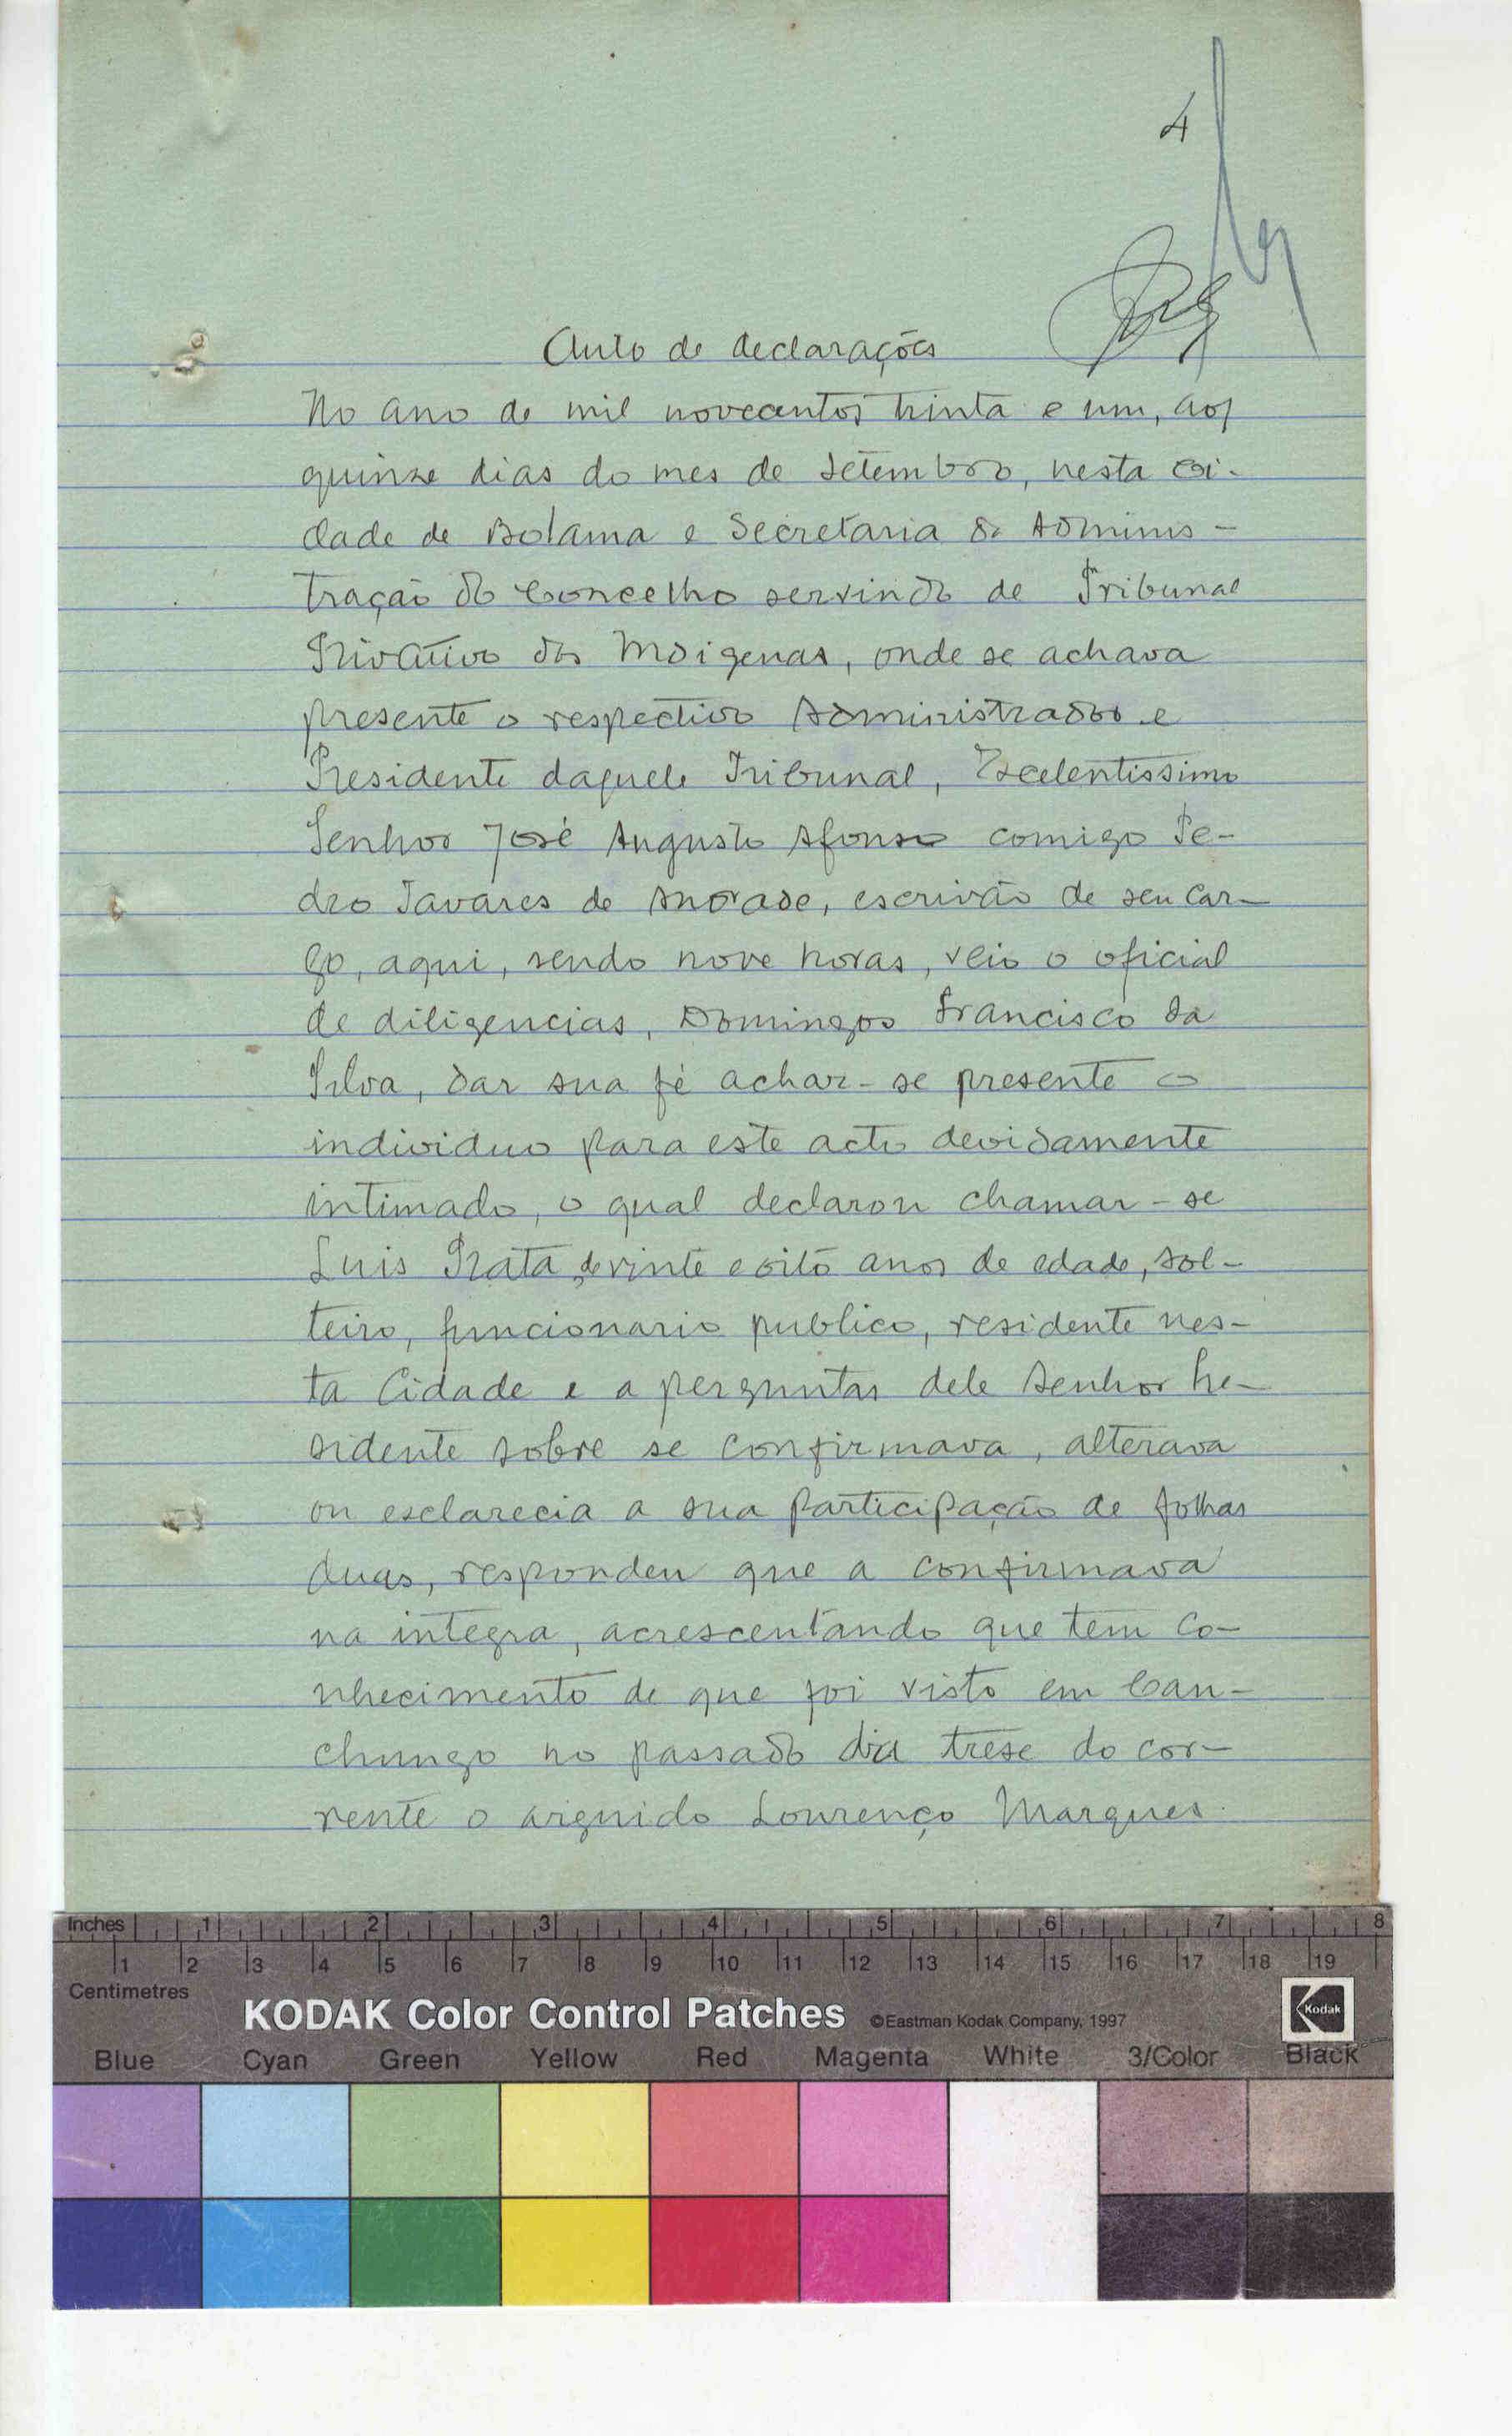 4
Auto de declarações
No ano de mil novecentos trinta e um, aos
quinze dias do mes de Setembro, nesta Ci-
dade de Bolama e Secretaria da Adminis-
tração do Concelho servindo de Tribunal
Privativo dos Indigenas, onde se achava
presente o respectivo Administrador e
Presidente daquele Tribunal, Excelentissimo
Senhor José Augusto Afonso comigo Pe-
dro Tavares de Andrade, escrivão de seu car-
go, aqui, sendo nove horas, veio o oficial
de diligencias, Domingos Francisco da
Silva, dar sua fé achar-se presente o
individuo para este acto devidamente
intimado, o qual declarou chamar-se
Luis Prata de vinte e oito anos de edade, sol-
teiro, funcionario publico, residente nes-
ta Cidade e a perguntas dele Senhor Pre-
sidente sobre se confirmava, alterava
ou esclarecia a sua participação de folhas
duas, respondeu que a confirmava
na integra, acrescentando que tem co-
nhecimento de que foi visto em Can-
chungo no passado dia treze do cor-
rente o arguido Lourenço Marques.
Inches 1 2 3 4 5 6 7 8
1 2 3 4 5 6 7 8 9 10 11 12 13 14 15 16 17 18 19
Centimetres
KODAK Color Control Patches ©Eastman Kodak Company, 1997 Kodak
Blue Cyan Green Yellow Red Magenta White 3/Color Black